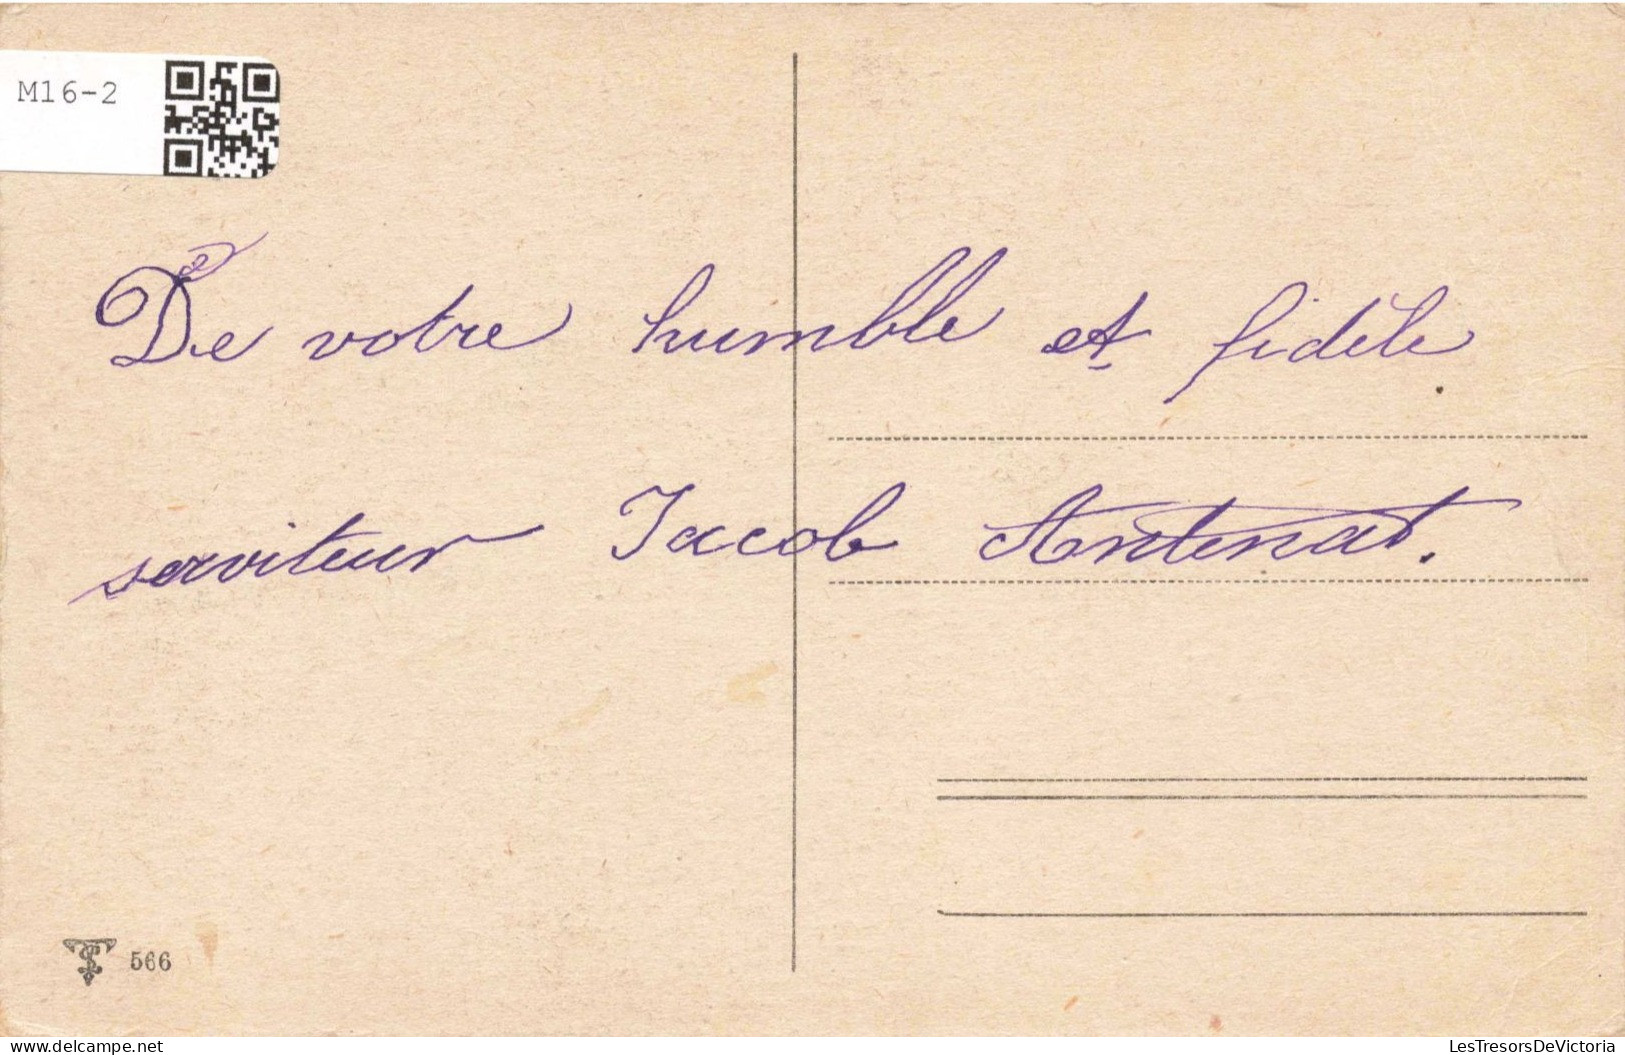 M16-2
De votre humble et fidèle
serviteur Jacob Antenat.
566
LesTresorsDeVictoria